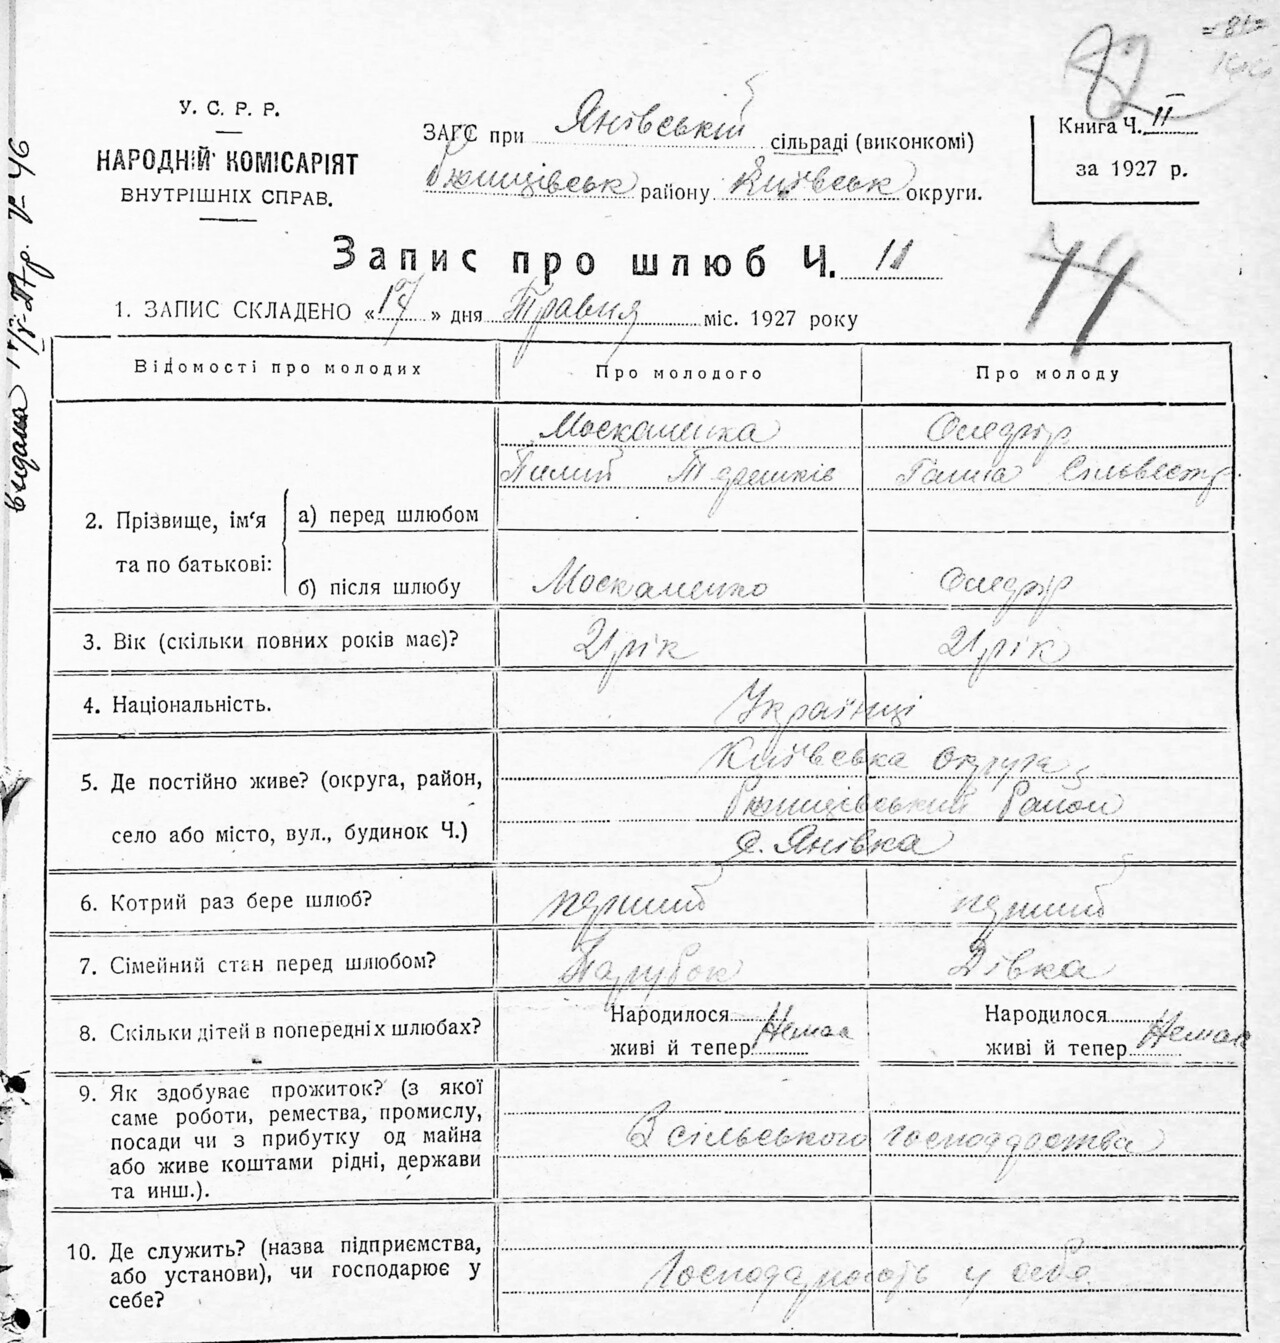 У. С. Р. Р.
НАРОДНІЙ КОМІСАРІЯТ
ВНУТРІШНІХ СПРАВ.
ЗАГС при Янівській сільраді (виконкомі)
Ржищівськ району Київськ округи.
82
= 81 =
Книга Ч. II
за 1927 р.
Запис про шлюб Ч. 11
74
1. ЗАПИС СКЛАДЕНО «17» дня Травня міс. 1927 року
видана V-46
Відомості про молодих
Про молодого
Про молоду
2. Прізвище, ім‘я та по батькові:
а) перед шлюбом
Москаленка
Пилип Терешків
Ганна Сільвестр
б) після шлюбу
Москаленко
3. Вік (скільки повних років має)?
21 рік
21 рік
4. Національність.
Українці
5. Де постійно живе? (округа, район,
село або місто, вул., будинок Ч.)
Київська округа
Ржищівський район
с. Янівка
6. Котрий раз бере шлюб?
перший
перший
7. Сімейний стан перед шлюбом?
Парубок
Дівка
8. Скільки дітей в попередніх шлюбах?
Народилося
живі й тепер
Немає
Народилося
живі й тепер
Немає
9. Як здобуває прожиток? (з якої
саме роботи, ремества, промислу,
посади чи з прибутку од майна
або живе коштами рідні, держави
та инш.).
З сільського господарства
10. Де служить? (назва підприємства,
або установи), чи господарює у
себе?
Господарюють у себе